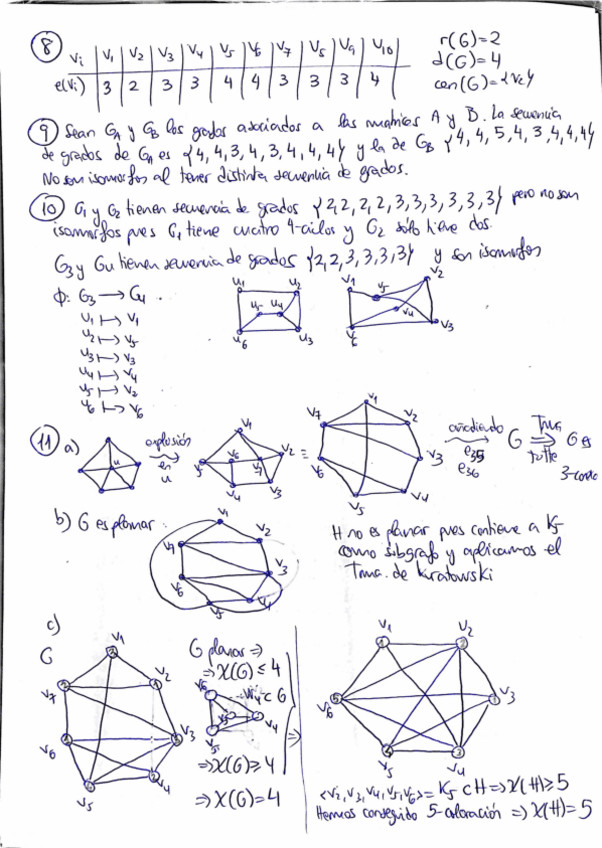 8 Vi | V1 | V2 | V3 | V4 | V5 | V6 | V7 | V5 | V9 | V10
e(Vi) | 3 | 2 | 3 | 3 | 4 | 4 | 3 | 3 | 3 | 4
r(G)=2
d(G)=4
cen(G)={V2}
9 Sean GA y GB los grafos asociados a las matrices A y B. La secuencia
de grados de GA es {4, 4, 3, 4, 3, 4, 4, 4} y la de GB {4, 4, 5, 4, 3, 4, 4, 4}
No son isomorfos al tener distinta secuencia de grados.
10 G1 y G2 tienen secuencia de grados {2, 2, 2, 2, 3, 3, 3, 3, 3, 3} pero no son
isomorfos pues G1 tiene cuatro 4-ciclos y G2 sólo tiene dos.
G3 y G4 tienen secuencia de grados {2, 2, 3, 3, 3, 3} y son isomorfos
ϕ: G3 → G4
u1 ↦ v1
u2 ↦ v5
u3 ↦ v3
u4 ↦ v4
u5 ↦ v2
u6 ↦ v6
u1 u2
u5 u4
u6 u3
v1 v5 v2
v4
v6 v3
11 a)
u
explosión
en
u
v1
v5 v6 v7 v2
v4 v3
≡
v1
v7 v2
v6 v3
v5 v4
añadiendo
e35
e36
G ⟹ G es
Tma
tutte
3-conexo
b) G es planar
v1
v7 v2
v3
v6
v5 v4
H no es planar pues contiene a K5
como subgrafo y aplicamos el
Tma. de Kuratowski
c)
G
v1
v7 v2
v6 v3
v5 v4
G planar ⇒
⇒ χ(G) ≤ 4
v6
⊂ G
v3 v4
v5
⇒ χ(G) ≥ 4
⇒ χ(G) = 4
⇒
v1 v2
v6 v3
v5 v4
<v2, v3, v4, v5, v6> = K5 ⊂ H ⇒ χ(H) ≥ 5
Hemos conseguido 5-coloración ⇒ χ(H) = 5